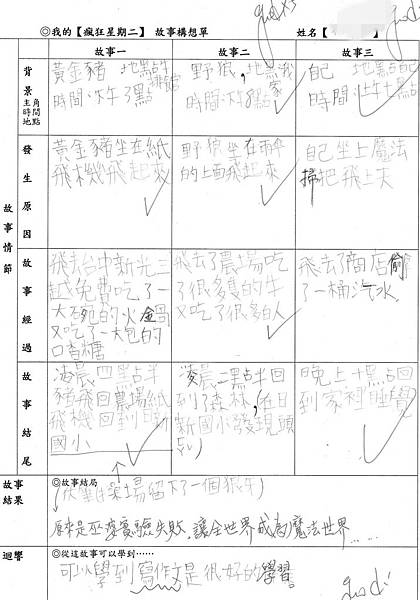 ◎我的【瘋狂星期二】 故事構想單 姓名【 】
good
故事一 故事二 故事三
背景 主角 時間 地點
黃金豬 地點:
時間:下午7點
野狼,地點:我家
時間:下午8點
自己 地點:自己
時間:上午十點
故事情節
發生原因
黃金豬坐在紙
飛機飛起來
野狼坐在雨傘
的上面飛起來
自己坐上魔法
掃把飛上來
故事經過
飛去台中新光三
越免費吃了一
大碗的火鍋
又吃了一大包的
口香糖
飛去了農場吃
了很多隻的牛
又吃了很多人
飛去了商店偷
了一桶汽水
故事結尾
凌晨四點半
豬飛回農場紙
飛機回到日新
國小
凌晨二點半回
到了森林,在日
新國小發現頭
晚上十點回
到家裡睡覺
故事結果
◎故事結局
現場留下了一個狼牙
原來是巫婆實驗失敗,讓全世界成為魔法世界……
迴響
◎從這故事可以學到……
可以學到寫作文是很好的學習。
good